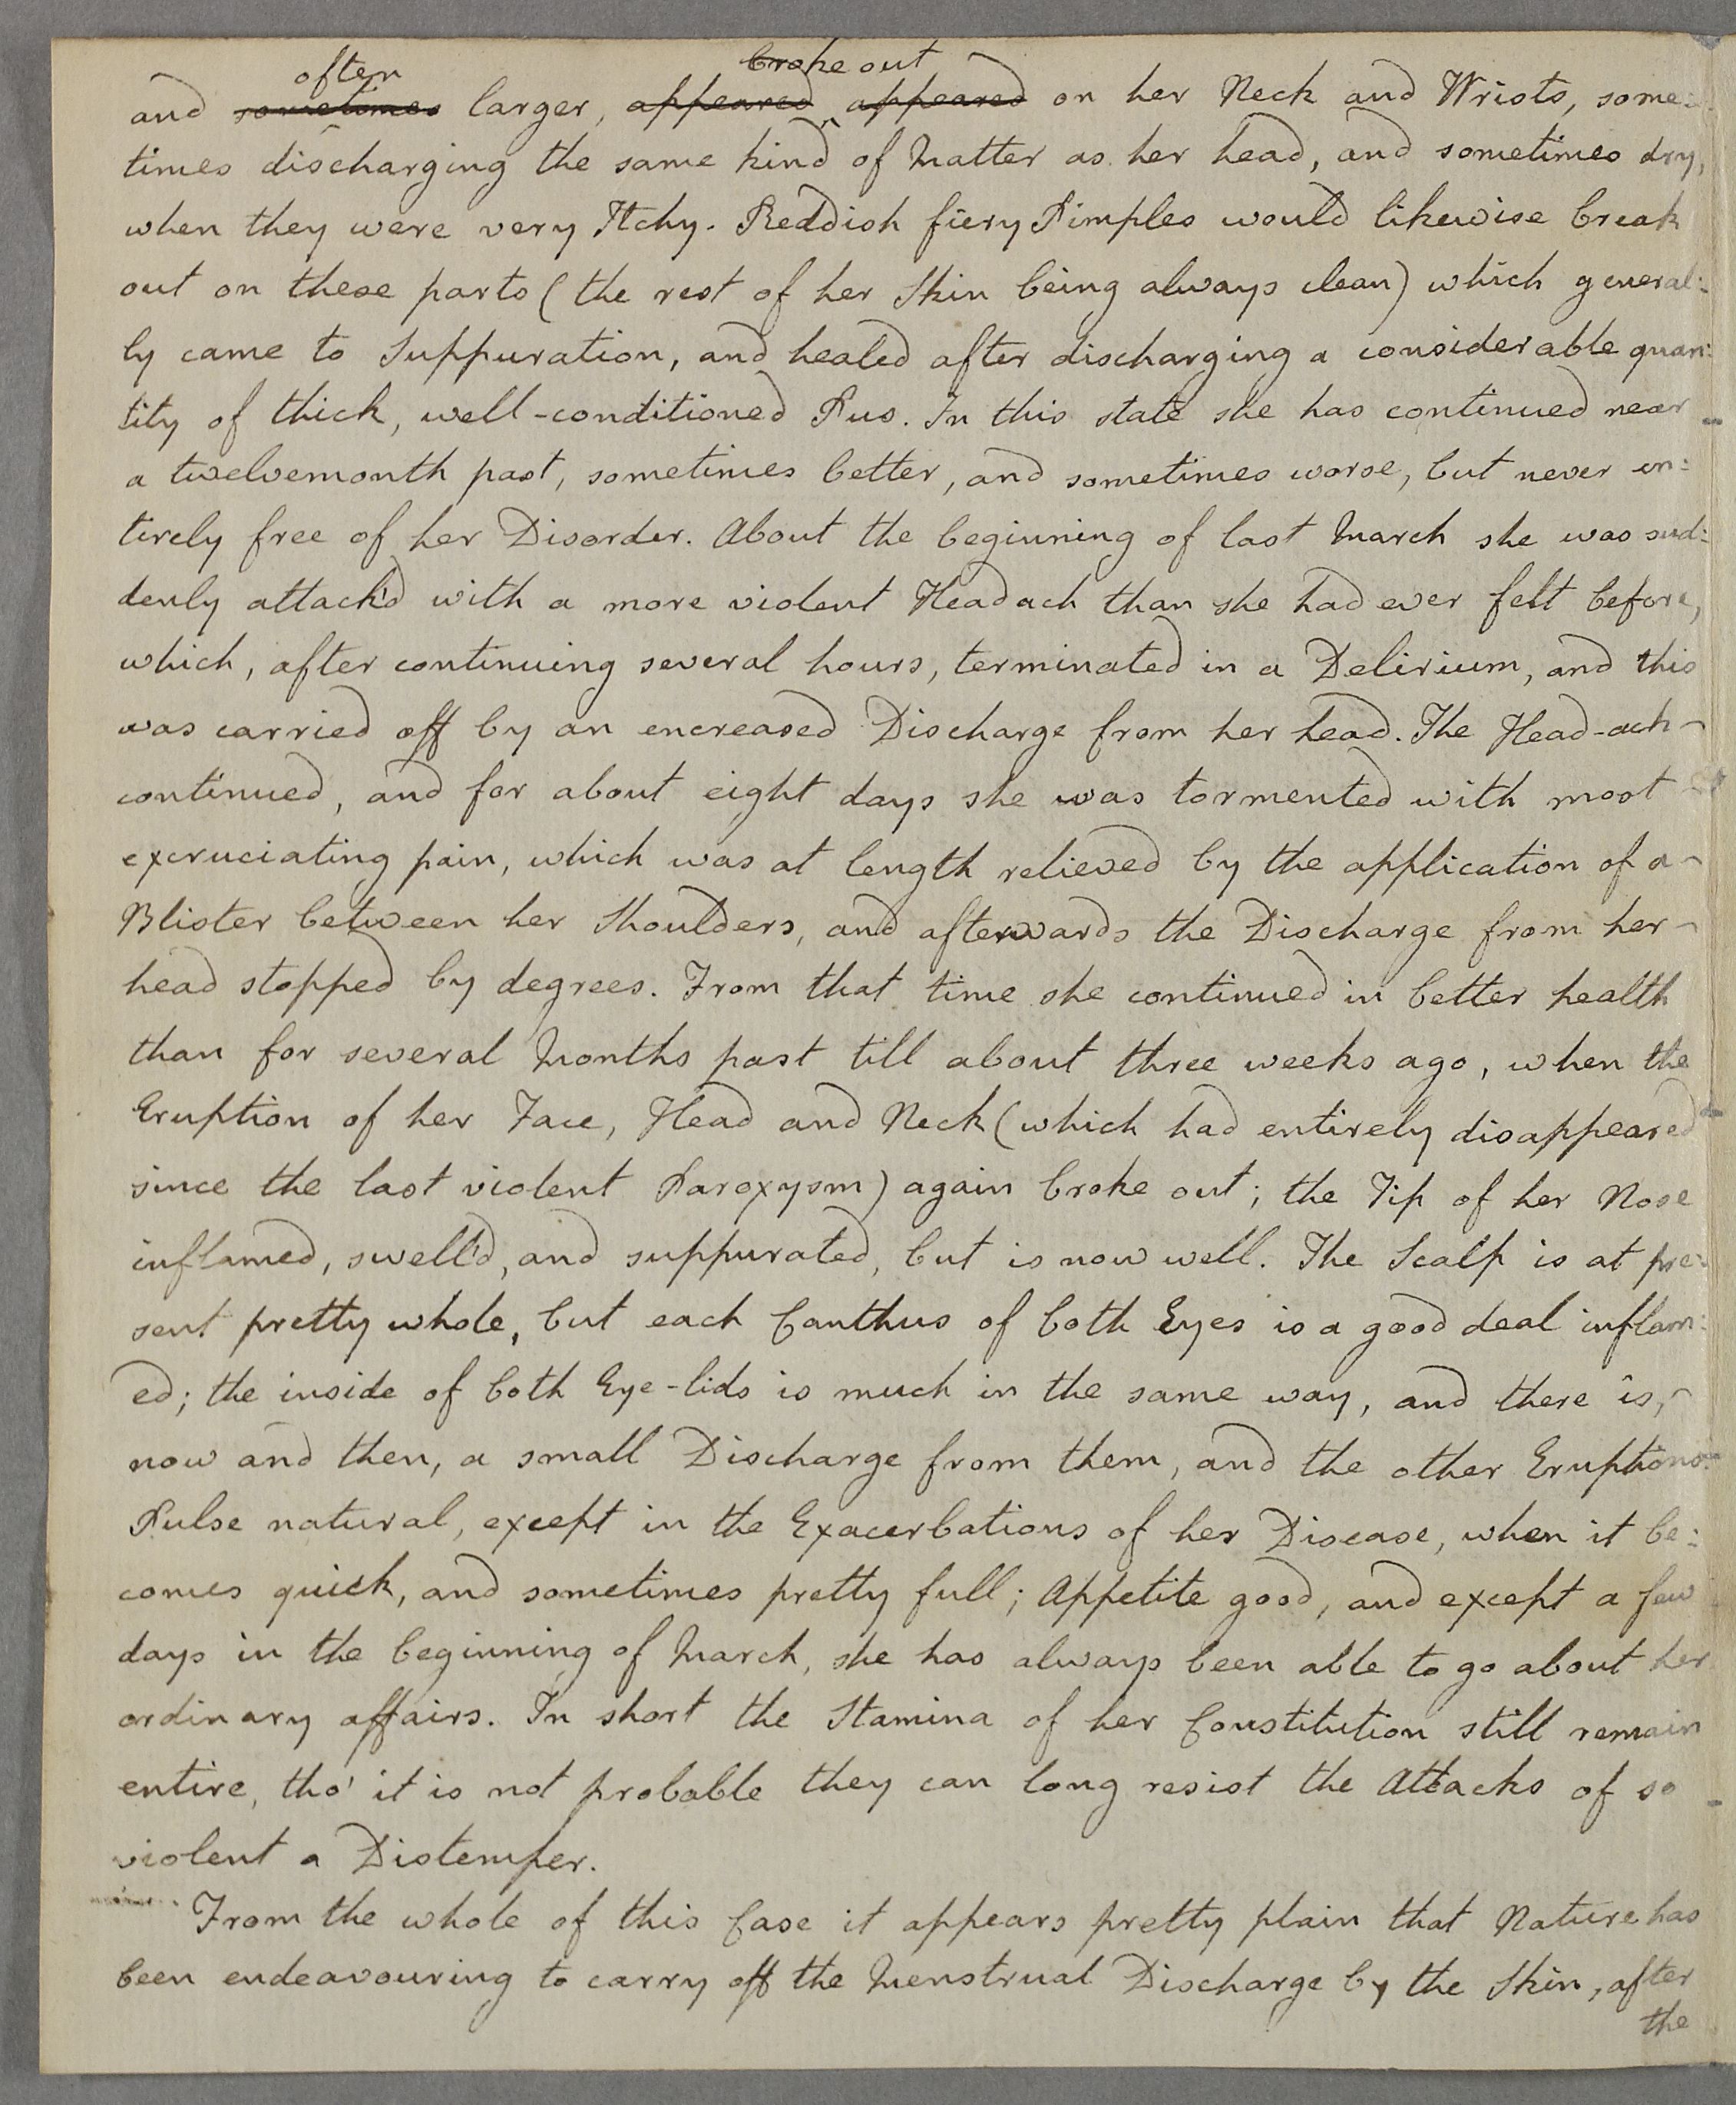 often broke out
and sometimes larger, appeared appeared on her Neck and Wrists, some:
times discharging the same kind of Matter as her head, and sometimes dry,
when they were very Itchy. Reddish fiery Pimples would likewise break
out on these parts (the rest of her Skin being always clean) which general:
ly came to Suppuration, and healed after discharging a considerable quan:
tity of thick, well-conditioned Pus. In this state she has continued near
a twelvemonth past, sometimes better, and sometimes worse, but never en:
tirely free of her Disorder. About the beginning of last March she was sud:
denly attack'd with a more violent Headach than she had ever felt before,
which, after continuing several hours, terminated in a Delirium, and this
was carried off by an encreased Discharge from her head. The Head-ach
continued, and for about eight days she was tormented with most
excruciating pain, which was at length relieved by the application of a
Blister between her Shoulders, and afterwards the Discharge from her
head stopped by degrees. From that time she continued in better health
than for several Months past till about three weeks ago, when the
Eruption of her Face, Head and Neck (which had entirely disappeared
since the last violent Paroxysm) again broke out; the Tip of her Nose
inflamed, swell'd, and suppurated, but is now well. The Scalp is at pre:
sent pretty whole, but each Canthus of both Eyes is a good deal inflam:
ed; the inside of both Eye-lids is much in the same way, and there is,
now and then, a small Discharge from them, and the other Eruptions.
Pulse natural, except in the Exacerbations of her Disease, when it be:
comes quick, and sometimes pretty full; Appetite good, and except a few
days in the beginning of March, she has always been able to go about her
ordinary affairs. In short the Stamina of her Constitution still remain
entire, tho' it is not probable they can long resist the Attacks of so
violent a Distemper.
From the whole of this Case it appears pretty plain that Nature has
been endeavouring to carry off the Menstrual Discharge by the Skin, after
the